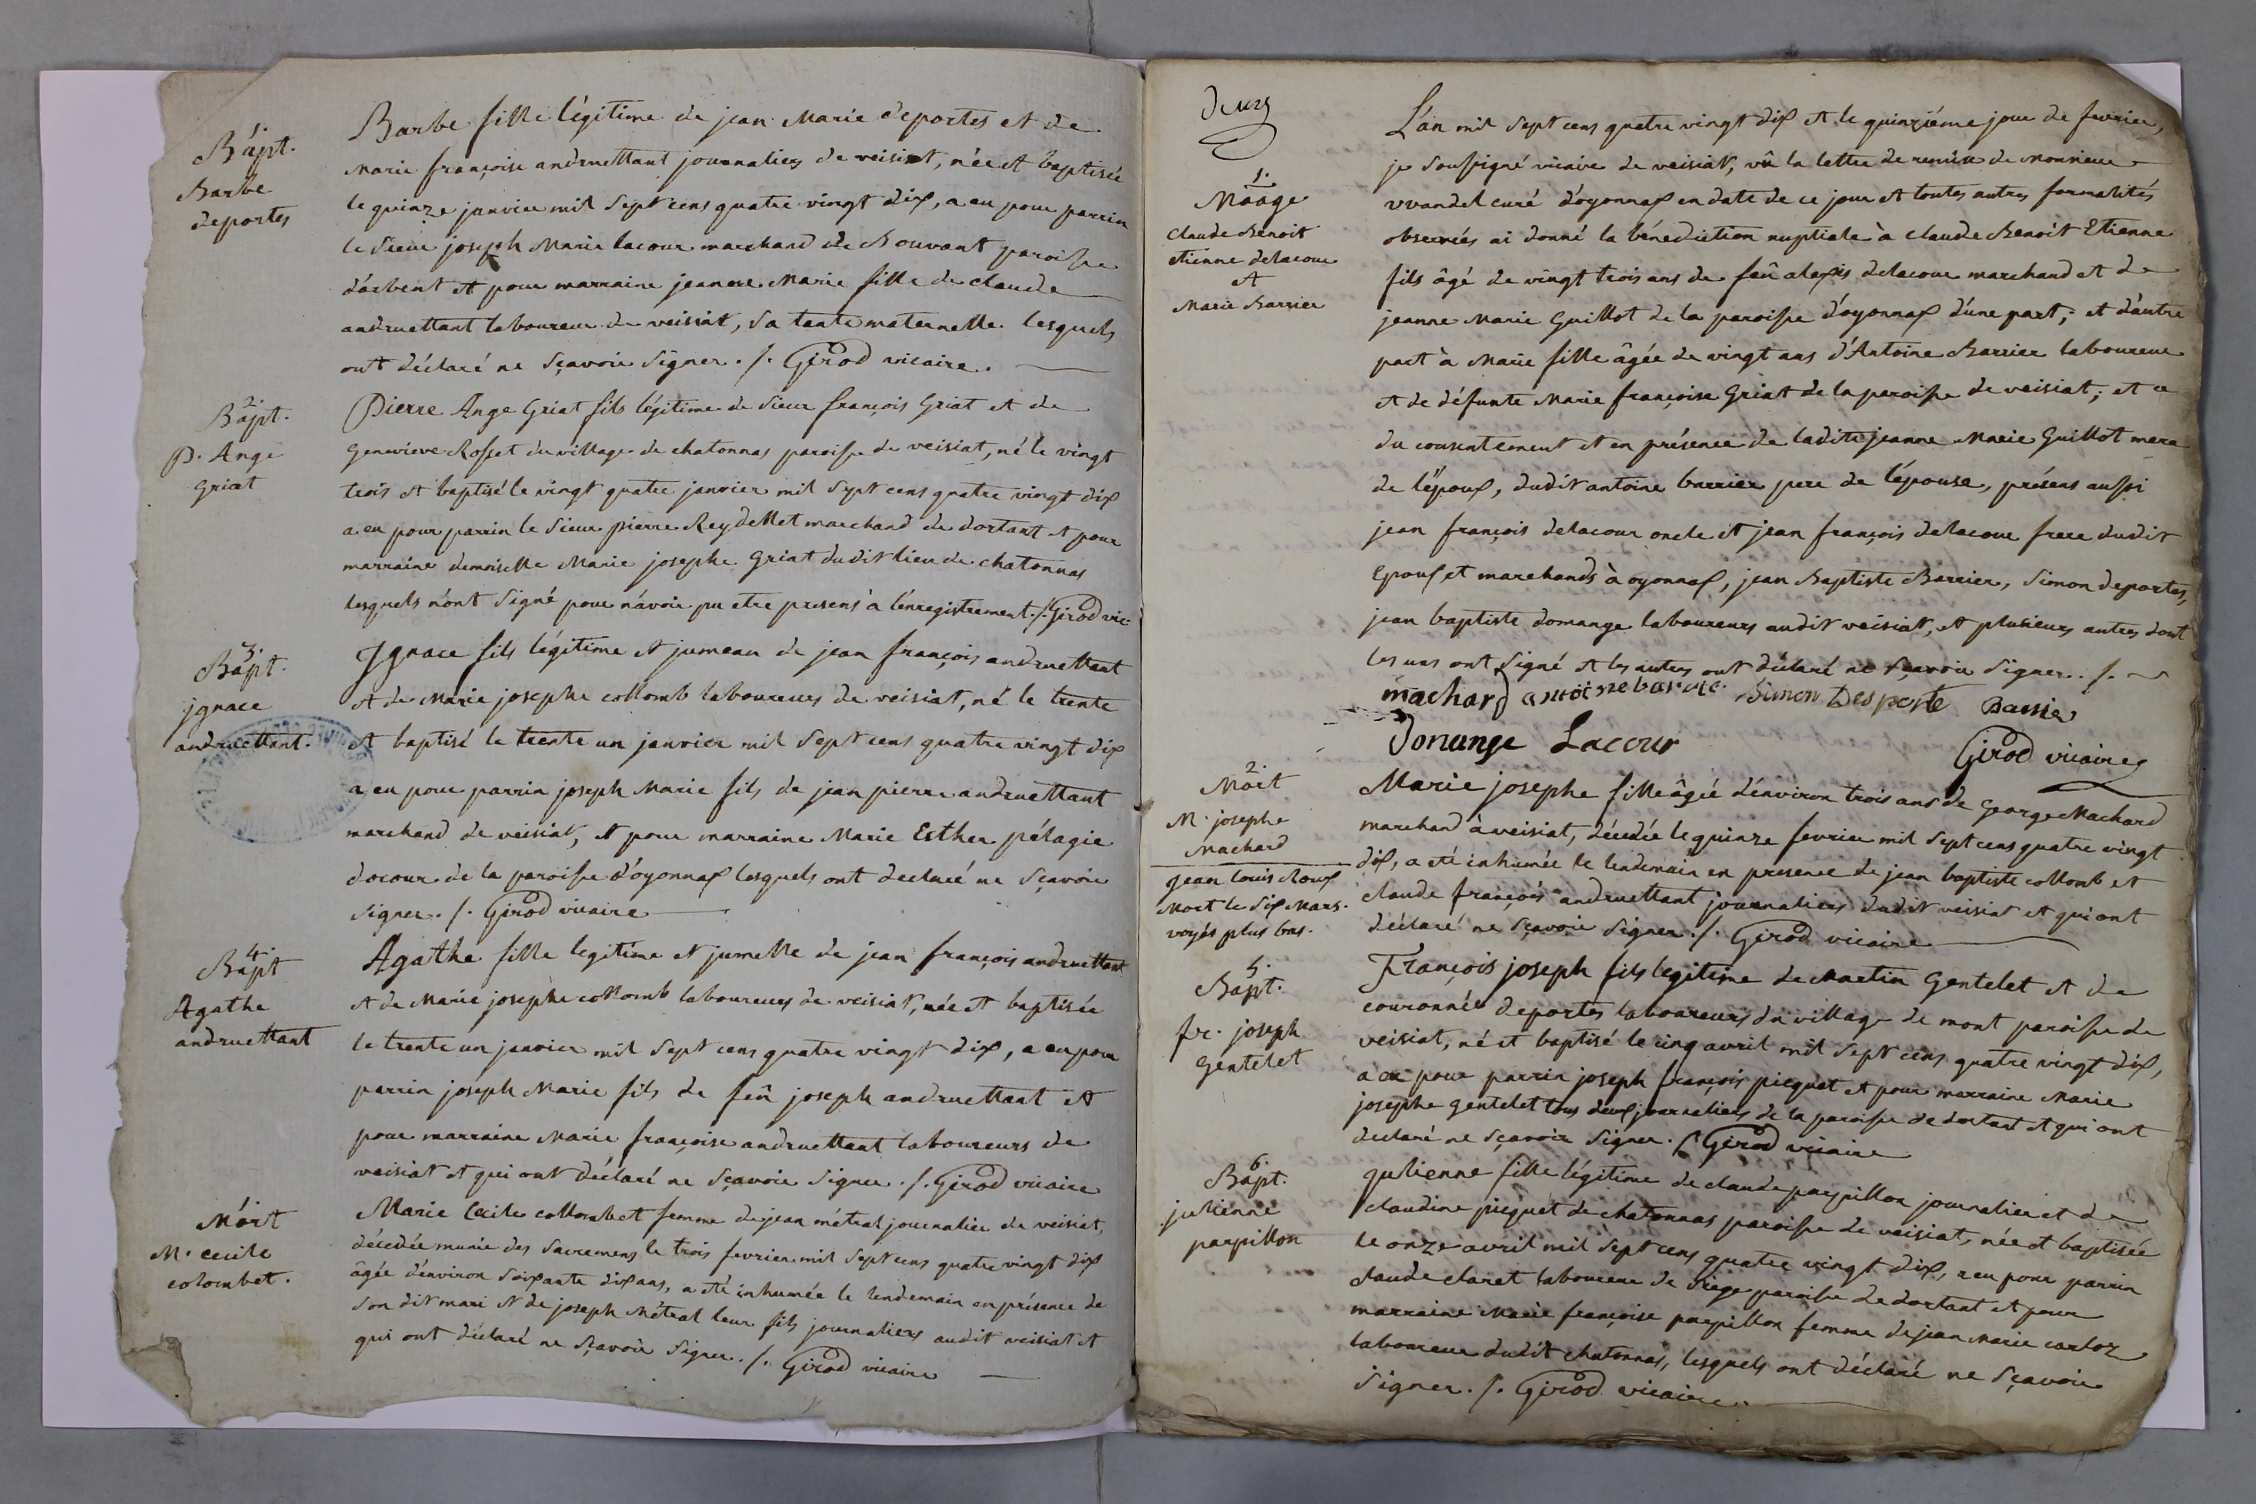 1.
Bapt.
Barbe
deportes
Barbe fille légitime de jean Marie deportes et de
Marie françoise andruettant journaliers de veisiat, née et baptisée
le quinze janvier mil sept cens quatre vingt dix, a eu pour parrin
le sieur joseph Marie lacour marchand de Bouvent paroisse
d'arbent et pour marraine jeanne Marie fille de claude
andruettant laboureur de veisiat, sa tante maternelle lesquels
ont déclaré ne sçavoir signer ./. Girod vicaire.
2.
Bapt.
P. Ange
Griat
Pierre Ange Griat fils légitime de sieur françois Griat et de
Genevieve Rosset du village de chatonnas paroisse de veisiat, né le vingt
trois et baptisé le vingt quatre janvier mil sept cens quatre vingt dix
a eu pour parrin le sieur pierre Reydellet marchand de dortant et pour
marraine demoiselle Marie josephe Griat dudit lieu de chatonnas
lesquels n'ont signé pour n'avoir pu etre presens à l'enregistrement ./. Girod vic.
3.
Bapt.
jgnace
andruettant.
Jgnace fils légitime et jumeau de jean françois andruettant
et de Marie josephe collomb laboureurs de veisiat, né le trente
et baptisé le trente un janvier mil sept cens quatre vingt dix
a eu pour parrin joseph Marie fils de jean pierre andruettant
marchand de veisiat, et pour marraine Marie Esther pélagie
docour de la paroisse d'oyonnax lesquels ont declaré ne sçavoir
signer ./. Girod vicaire
4.
Bapt
Agathe
andruettant
Agathe fille legitime et jumelle de jean françois andruettant
et de Marie josephe collomb laboureurs de veisiat, née et baptisée
le trente un janvier mil sept cens quatre vingt dix, a eu pour
parrin joseph Marie fils de feû joseph andruettant et
pour marraine Marie françoise andruettant laboureurs de
veisiat et qui ont déclaré ne sçavoir signer ./. Girod vicaire
1.
Mort
M. cecile
colombet.
Marie Cecile collombet femme de jean métral journalier de veisiat,
décedée munie des sacremens le trois fevrier mil sept cens quatre vingt dix
âgée d'environ soixante dix ans, a été inhumée le lendemain en présence de
son dit mari et de joseph Métral leur fils journaliers audit veisiat et
qui ont déclaré ne sçavoir signer ./. Girod vicaire
deux
1.
Maage
claude Benoit
etienne delacour
et
Marie Barrier
L'an mil sept cens quatre vingt dix et le quinzième jour de fevrier,
je soussigné vicaire de veisiat, vû la lettre de remise de Monsieur
vuandel curé d'oyonnax en date de ce jour et toutes autres formalités
observées ai donné la bénédiction nuptiale à claude Benoit Etienne
fils âgé de vingt trois ans de feû alexis delacour marchand et de
jeanne Marie Guillot de la paroisse d'oyonnax d'une part; et d'autre
part à Marie fille âgée de vingt ans d'Antoine Barrier laboureur
et de défunte Marie françoise Griat de la paroisse de veisiat; et ce
du consentement et en présence de ladite jeanne Marie Guillot mere
de l'époux, dudit antoine barrier pere de l'épouse, présens aussi
jean françois delacour oncle et jean françois delacour frere dudit
Epoux et marchands à oyonnax, jean Baptiste Barrier, simon deportes,
jean baptiste domange laboureurs audit veisiat, et plusieurs autres dont
les uns ont signé et les autres ont déclaré ne sçavoir signer ./.
machard antoine barrie Simon Desporte Barrier
Domange Lacour
Girod vicaire
2.
Mort
M. josephe
Machard
Marie josephe fille âgée d'environ trois ans de George Machard
marchand à veisiat, décedée le quinze fevrier mil sept cens quatre vingt
dix, a été inhumée le lendemain en presence de jean baptiste collomb et
claude françois andruettant journaliers dudit veisiat et qui ont
déclaré ne sçavoir signer ./. Girod vicaire
jean louis
Mort le six Mars.
voyés plus bas.
5.
Bapt.
fr. joseph
Gentelet
François joseph fils legitime de Martin Gentelet et de
couronnée deportes laboureurs du village de mont paroisse de
veisiat, né et baptisé le cinq avril mil sept cens quatre vingt dix,
a eu pour parrin joseph françois picquet et pour marraine Marie
josephe gentelet tous deux journaliers de la paroisse de dortant et qui ont
declaré ne sçavoir signer ./. Girod vicaire
6.
Bapt.
julienne
papillon
julienne fille légitime de claude papillon journalier et de
claudine picquet de chatonnas paroisse de veisiat, née et baptisée
le onze avril mil sept cens quatre vingt dix, a eu pour parrin
claude claret laboureur de siege paroisse de dortant et pour
marraine Marie françoise papillon femme de jean Marie carloz
laboureur dudit chatonnas, lesquels ont déclaré ne sçavoir
signer ./. Girod vicaire.